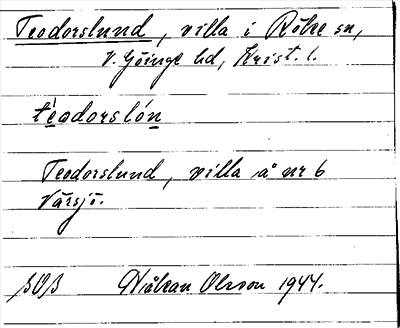 Teodorslund, villa i Röke sn,
V. Göinge hd, Krist. l.
teodorslón
Teodorslund, villa å nr 6
Värsjö.
Håkan Olsson 1944.